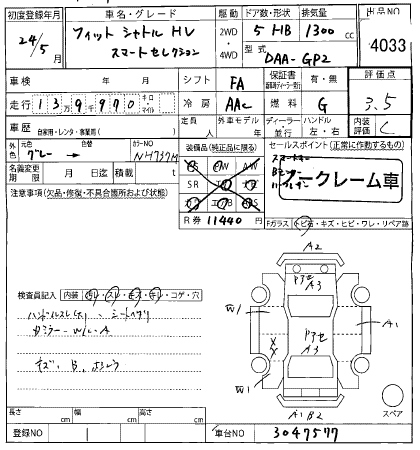 初度登録年月 車名・グレード 駆動 ドア数・形状 排気量 出品NO
24/5月 フィット シャトル HV スマートセレクション 2WD・4WD 5 HB 1300 cc 4033
型式 DAA-GP2
車検 年 月 シフト FA 保証書 有・無 評価点
走行 139970 キロ・マイル 冷房 AAC 燃料 G 3.5
車歴 自家用・レンタ・事業用( ) 定員 人 外車モデル 年 ディーラー・並行 ハンドル 左・右 内装評価 C
外色 元色 グレー 色替 カラーNO NH737M 装備品(純正品に限る) セールスポイント(正常に作動するもの)
名義変更期限 月 日迄 積載 t AW スマートキー
ノークレーム車
注意事項(欠品・修復・不具合箇所および状態) SR
R券 11440 円 Fガラス トビ石・キズ・ヒビ・ワレ・リペア跡
A2
検査員記入 内装 キレ・スレ・コゲ・穴 ドアセ A3
ハンドルスレ(大) W1 A1
ドアセ A3
キズ、B、 W1
A1 B2 スペア
長さ cm 幅 cm 高さ cm
登録NO 車台NO 3047577